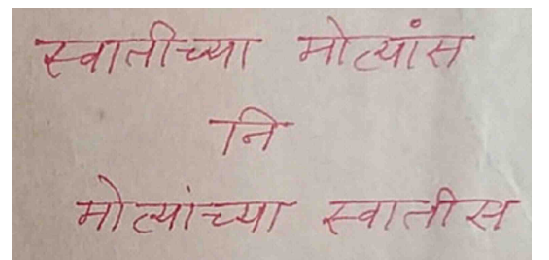 स्वातीच्या मोत्यांस
नि
मोत्यांच्या स्वातीस